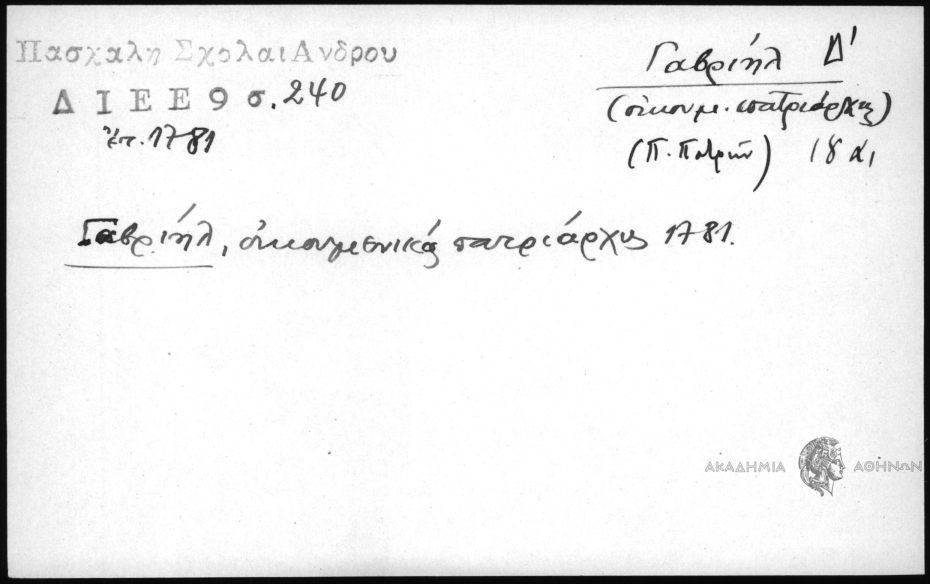 Πασχαλη Σχολαι Ανδρου
Δ Ι Ε Ε 9 σ. 240
ἔτ. 1781
Γαβριήλ Δ'
(οἰκουμ. πατριάρχης)
(Π. Πατρῶν) 18 αι
Γαβριήλ, οἰκουμενικός πατριάρχης 1781.
ΑΚΑΔΗΜΙΑ ΑΘΗΝΩΝ